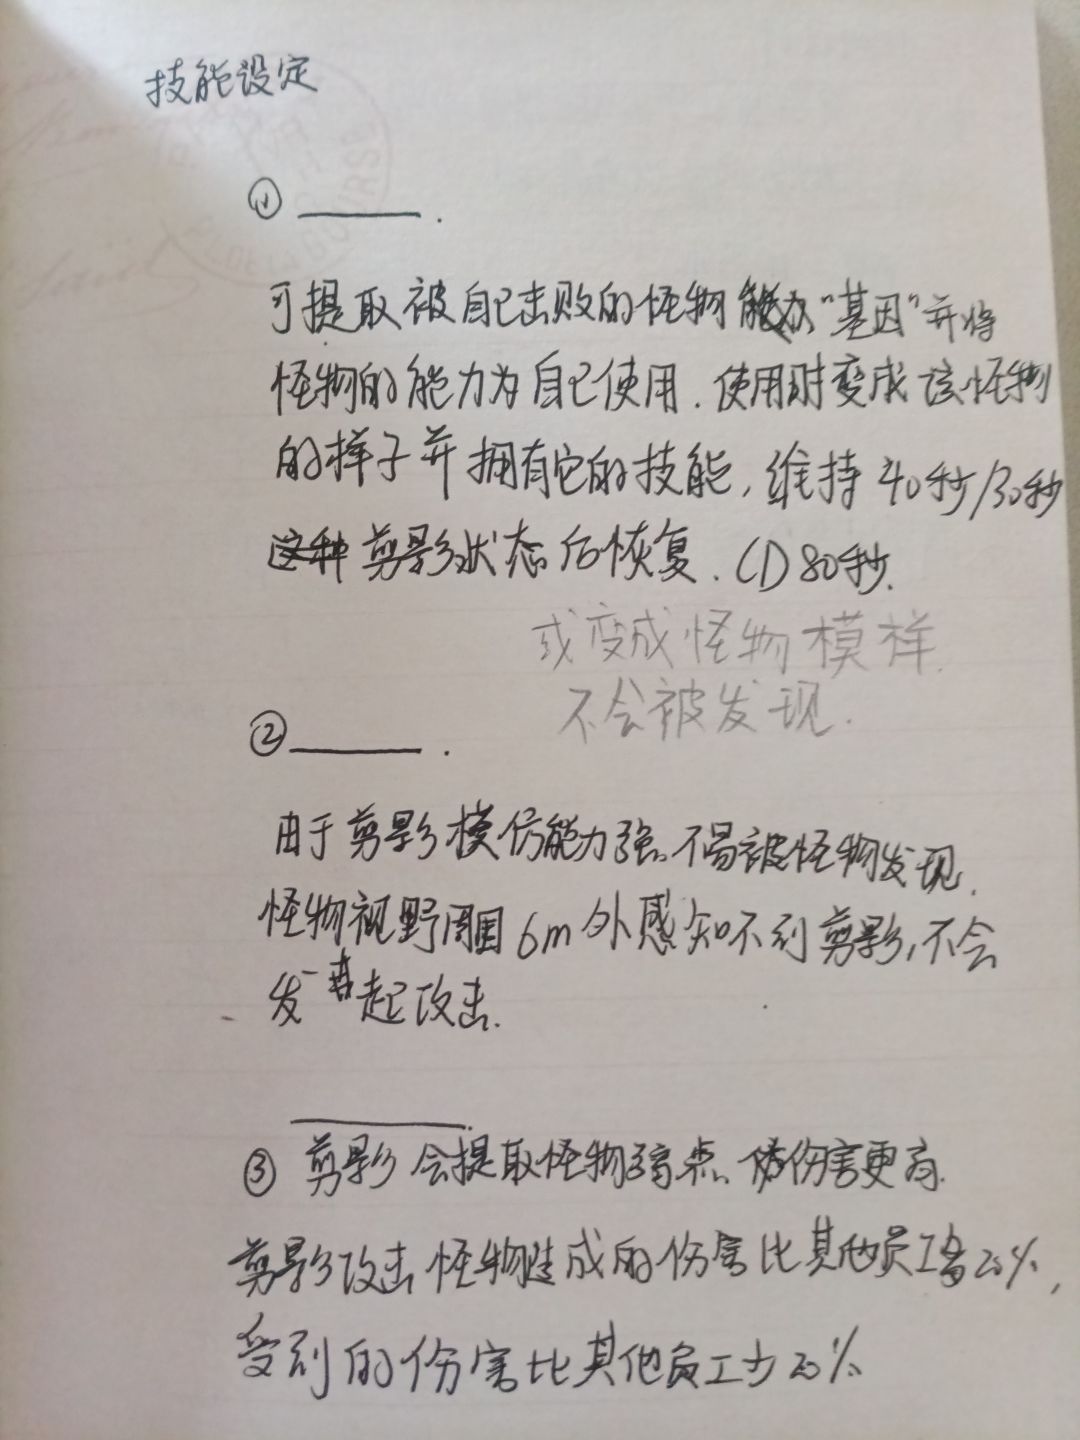 技能设定
① ______.
可提取被自己击败的怪物能力"基因"并将
怪物的能力为自己使用.使用时变成该怪物
的样子并拥有它的技能,维持40秒/30秒
这种剪影状态后恢复.CD80秒.
或变成怪物模样
不会被发现.
② ______.
由于剪影模仿能力强.不易被怪物发现.
怪物视野周围6m外感知不到剪影,不会
发起攻击.
______.
③ 剪影会提取怪物弱点.使伤害更高.
剪影攻击怪物造成的伤害比其他员工高20%,
受到的伤害比其他员工少20%.